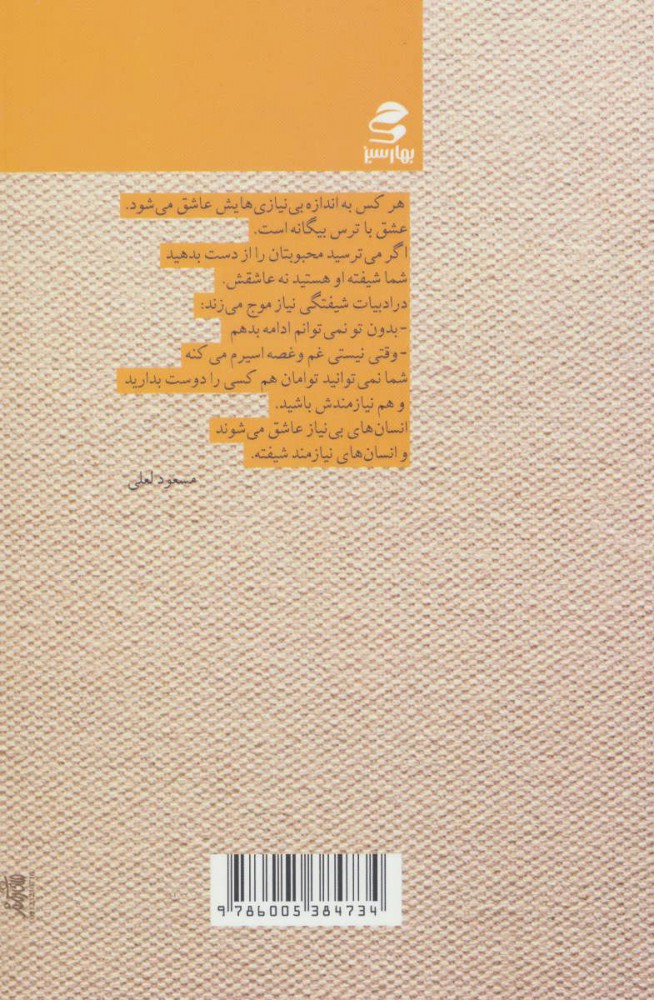 بهار سبز
هر کس به اندازه بی‌نیازی‌هایش عاشق می‌شود.
عشق با ترس بیگانه است.
اگر می‌ترسید محبوبتان را از دست بدهید
شما شیفته او هستید نه عاشقش.
در ادبیات شیفتگی نیاز موج می‌زند:
- بدون تو نمی‌توانم ادامه بدهم
- وقتی نیستی غم و غصه اسیرم می‌کنه
شما نمی‌توانید توامان هم کسی را دوست بدارید
و هم نیازمندش باشید.
انسان‌های بی‌نیاز عاشق می‌شوند
و انسان‌های نیازمند شیفته.
مسعود لعلی
9 786005 384734